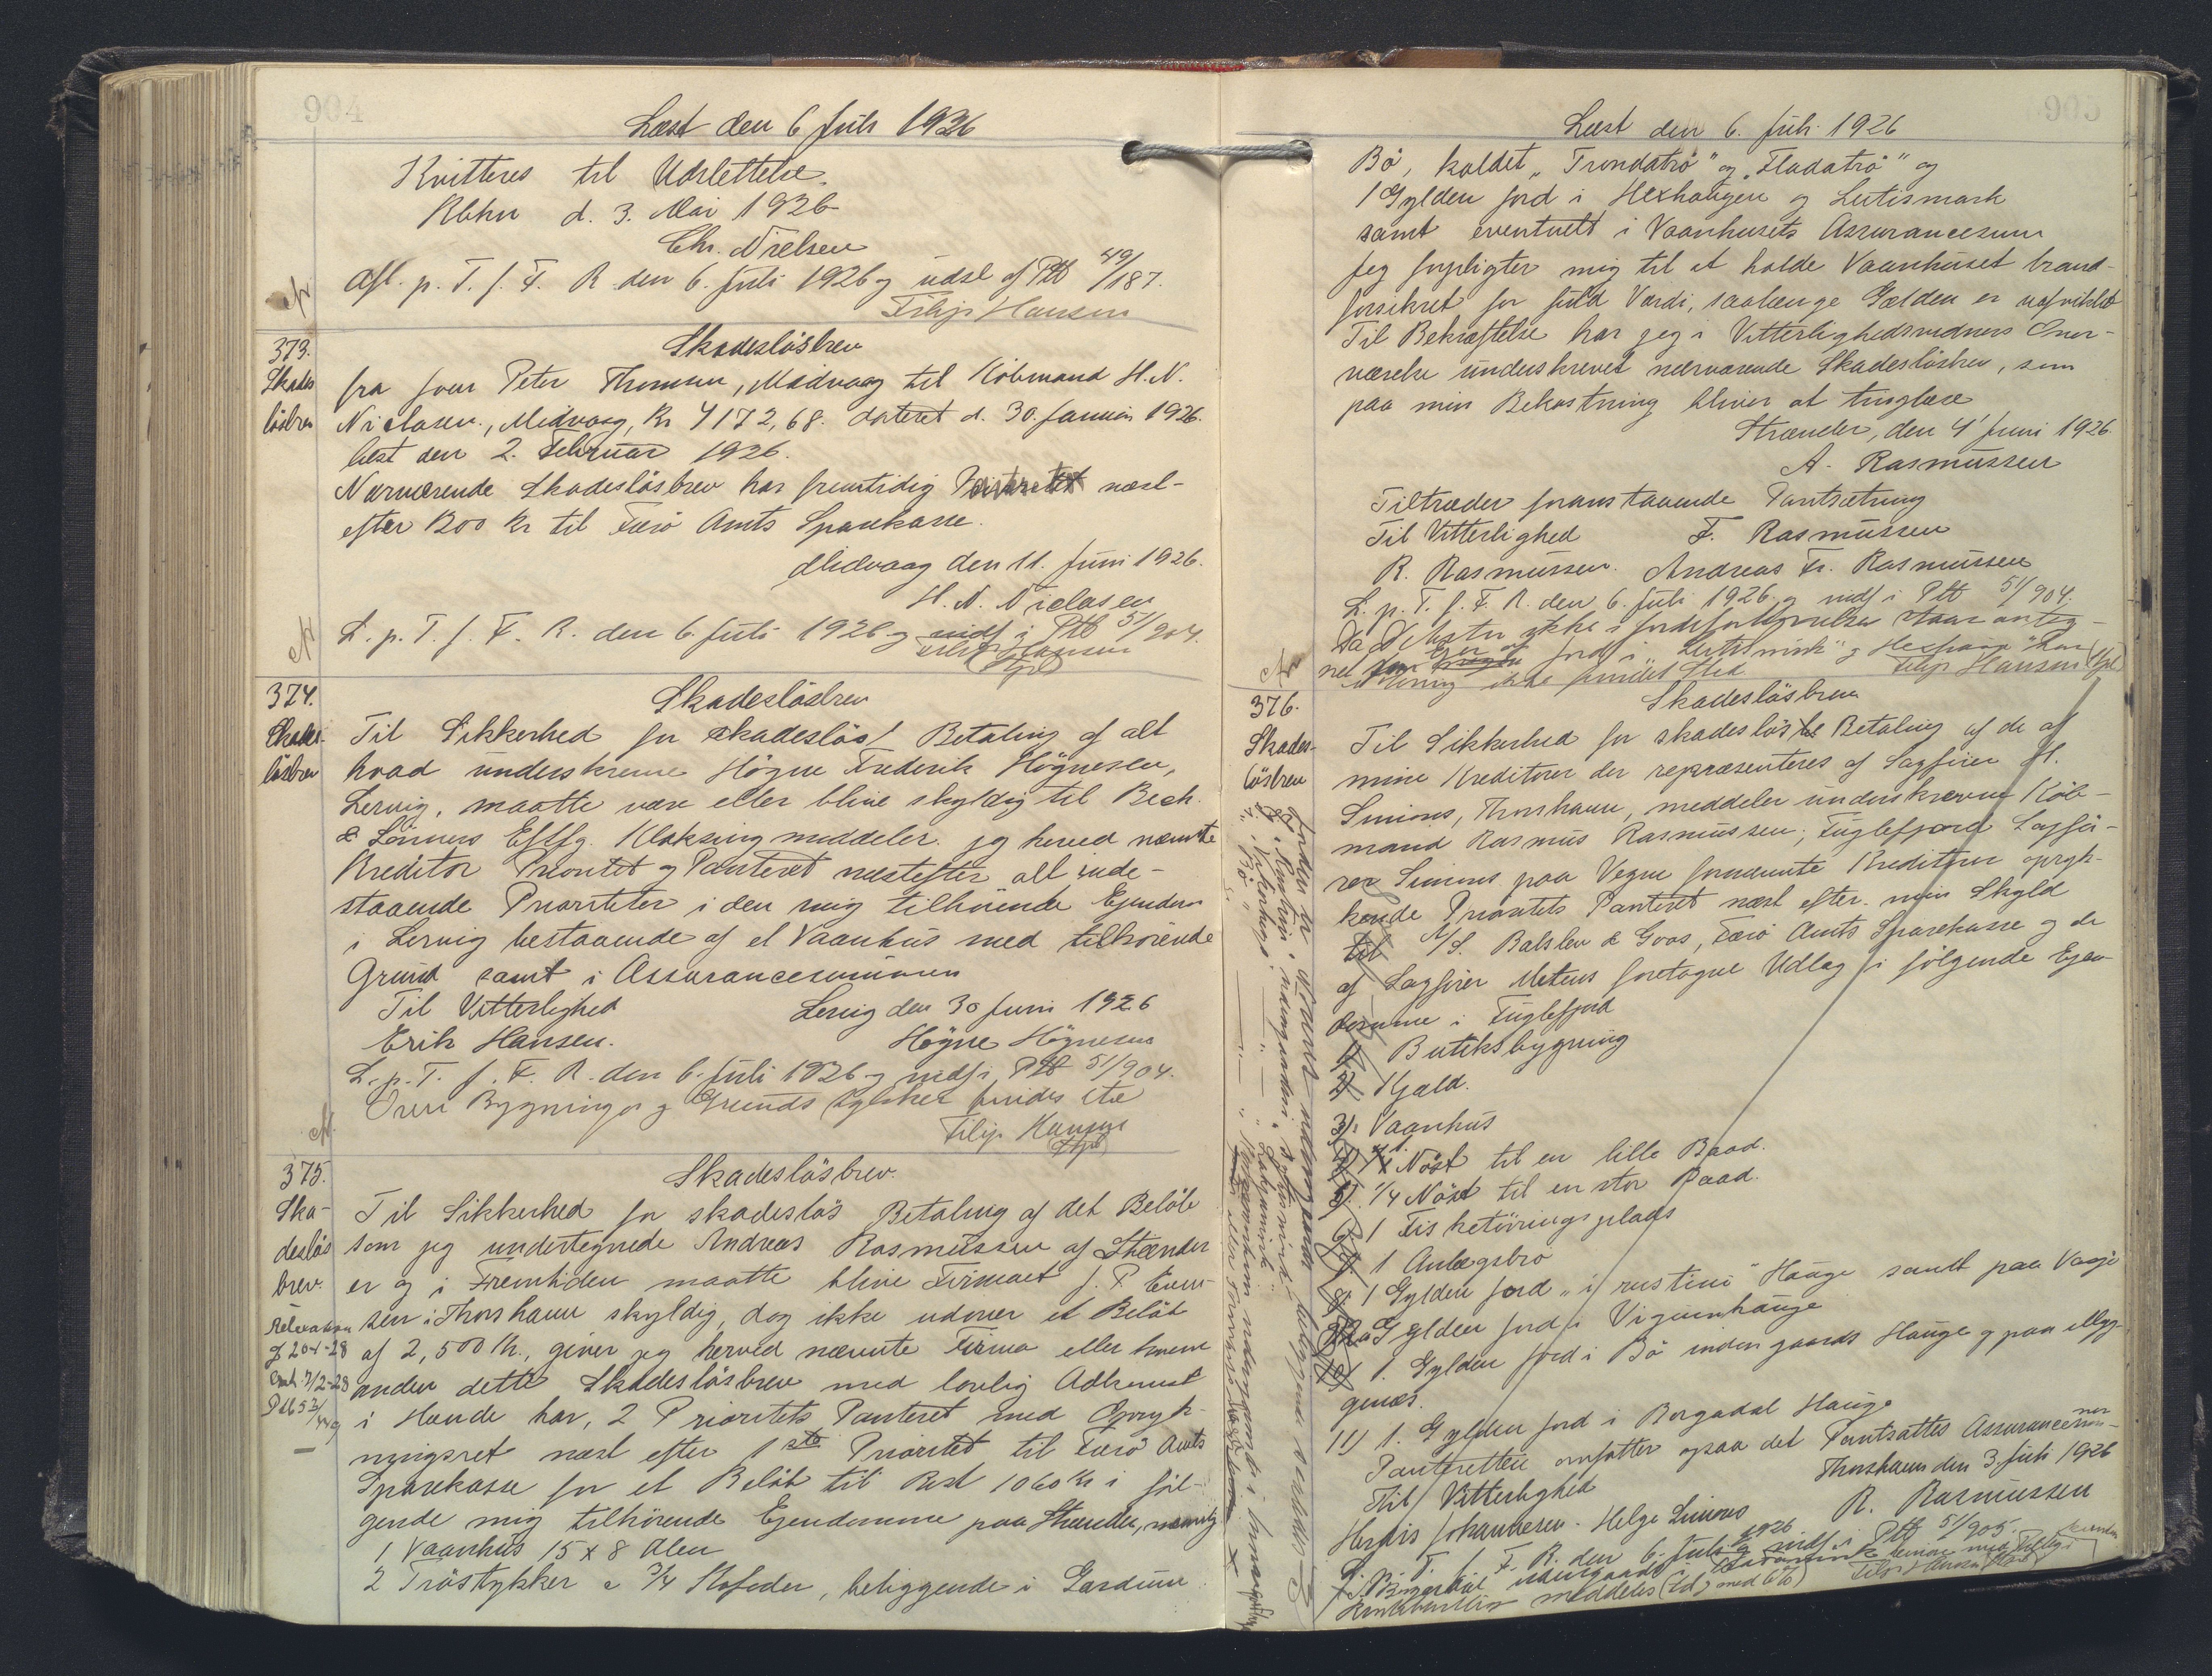 904
Læst den 6 Juli 1926
Kvitteres til Udslettelse.
Kbhn d. 3. Mai 1926
Chr. Nielsen
Afl. p. T. f. F. R. den 6. Juli 1926 og udsl af Ptb 49/187.
Filip Hansen
373.
Skades
løsbrev
Skadesløsbrev
fra Joen Peter Thomsen, Midvaag til Købmand H. N.
Niclasen, Midvaag, Kr 4172,68. dateret d. 30. Januar 1926.
læst den 2. Februar 1926.
Nærværende Skadesløsbrev har fremtidig Panteret næst-
efter 1200 Kr til Færø Amts Sparekasse.
Midvaag den 11. Juni 1926.
H. N. Niclasen
L. p. T. f. F. R. den 6. Juli 1926 og indf i Ptb 51/904.
Filip Hansen
374.
Skades-
løsbrev
Skadesløsbrev
Til Sikkerhed for skadesløs Betaling af alt
hvad underskrevne Högne Frederik Högnesen,
Lervig, maatte være eller blive skyldig til Bech
& Sønners Eftfg. Klaksvig meddeler jeg herved nævnte
Kreditor Prioritet og Panteret næstefter alt inde-
staaende Prioriteter i den mig tilhørende Ejendom
i Lervig bestaaende af et Vaanhus med tilhørende
Grund samt i Assurancesummen
Til Vitterlighed
Lervig den 30 Juni 1926
Erik Hansen.
Högne Högnesen
L. p. T. f. F. R. den 6. Juli 1926 og indf i Ptb 51/904.
Over Bygninger og Grundstykker findes
Filip Hansen
375.
Ska-
desløs
brev.
Relaxation
J 204-28
7/2-28
Ptb 53/449
Skadesløsbrev.
Til Sikkerhed for skadesløs Betaling af det Beløb
som jeg undertegnede Andreas Rasmussen af Strænder
er og i Fremtiden maatte blive Firmaet J. P. Even-
sen i Thorshavn skyldig, dog ikke udover et Beløb
af 2,500 Kr., giver jeg herved nævnte Firma eller hvem
anden dette Skadesløsbrev med lovlig Adkomst
i Hænde har, 2 Prioritets Panteret med Opryk-
ningsret næst efter 1ste Prioritet til Færø Amts
Sparekasse for et Beløb til Rest 1060 Kr i föl-
gende mig tilhørende Ejendomme paa Strænder, nemlig
1 Vaanhus 15 x 8 Alen
2 Tröstykker a 3/4 Kofoder, beliggende i Gardum
905
Læst den 6. Juli 1926
Bö, kaldet „Trondatrö" og „Fladatrö" og
1 Gylden Jord i Hexhaugen og Lutismark
samt eventuelt i Vaanhusets Assurancesum
Jeg forpligter mig til at holde Vaanhuset brand-
forsikret for fuld Værdi, saalænge Gælden er uafviklet
Til Bekræftelse har jeg i Vitterlighedsvidners Over-
værelse underskrevet nærværende Skadesløsbrev, som
paa min Bekostning bliver at tinglæse
Strænder, den 4' Juni 1926
A. Rasmussen
Tiltræder foranstaaende Pantsætning
Til Vitterlighed
F. Rasmussen
R. Rasmussen. Andreas Fr. Rasmussen
L. p. T. f. F. R. den 6. Juli 1926 og indf i Ptb 51/904.
Da Debitor ikke i Jordefortegnelsen staar anteg-
net
Filip Hansen
376.
Skades-
løsbrev
Skadesløsbrev
Til Sikkerhed for skadesløs Betaling af de af
mine Kreditorer der repræsenteres af Sagfører H.
Simons, Thorshavn, meddeler underskrevne Köb-
mand Rasmus Rasmussen, Fuglefjord Sagfö-
rer Simons paa Vegne fornævnte Kreditorer opryk-
kende Prioritets Panteret næst efter min Skyld
til A/S. Balslev & Goos, Færø Amts Sparekasse og de
af Sagfører Mitens foretagne Udlæg i følgende Ejen-
domme i Fuglefjord
1) Butiksbygning
2) Kjald.
3) Vaanhus
4) 1 Nöst til en lille Baad.
5) 1/4 Nöst til en stor Baad.
6) 1 Fisketörringsplads
7) 1 Anlægsbro
8) 1 Gylden Jord „i rustini" Hauge samt paa
9) Gylden Jord i
10) 1 Gylden Jord i Bö inden gaards Hauge og paa
genæs.
11) 1 Gylden Jord i Borgadal Hauge
Panteretten omfatter ogsaa det Pantsattes Assurancesum-
mer
Thorshavn den 3. Juli 1926
Til Vitterlighed
R. Rasmussen
Herdis Johannesen. Helge Simons
L. p. T. f. F. R. den 6. Juli 1926 og indf. i Ptb 51/905.
Filip Hansen